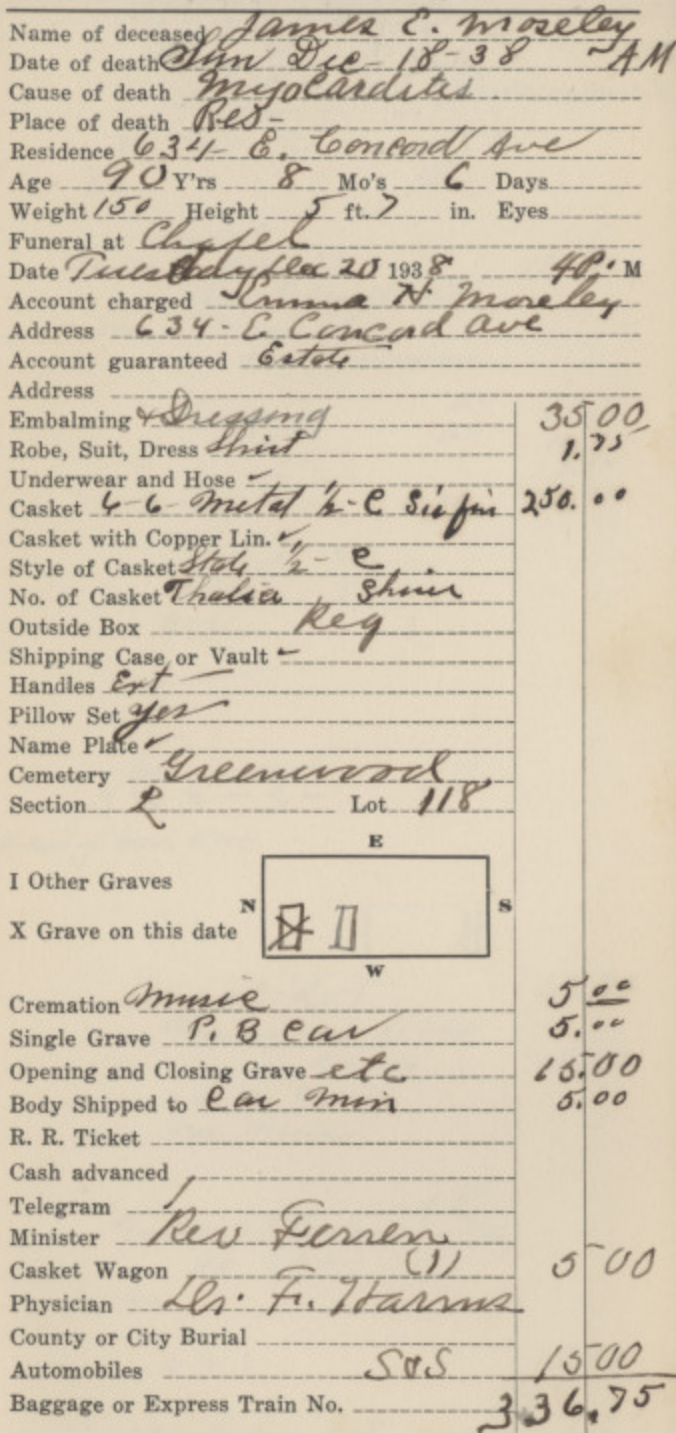 Name of deceased James E. Moseley
Date of death Sun Dec-18-38 - AM
Cause of death Myocardites
Place of death Res-
Residence 634 E. Concord Ave
Age 90 Y'rs 8 Mo's 6 Days
Weight 150 Height 5 ft. 7 in. Eyes
Funeral at Chapel
Date Tuesday Dec 20 1938 4 P. M
Account charged Emma H Moseley
Address 634- E Concord Ave
Account guaranteed Estate
Address
Embalming & Dressing 35 00
Robe, Suit, Dress Shirt 1.75
Underwear and Hose
Casket 6-6- Metal ½-C 250.00
Casket with Copper Lin.
Style of Casket State ½-C
No. of Casket Thalia
Outside Box Reg
Shipping Case or Vault -
Handles Ext
Pillow Set yes
Name Plate
Cemetery Greenwood
Section L Lot 118
E
I Other Graves
N S
X Grave on this date
W
Cremation Music 5 00
Single Grave P. B Car 5.00
Opening and Closing Grave etc 15.00
Body Shipped to Car Min 5.00
R. R. Ticket
Cash advanced
Telegram
Minister Rev Ferren
Casket Wagon (1) 5 00
Physician Dr. F. Harms
County or City Burial
Automobiles S&S 15 00
Baggage or Express Train No. 336.75